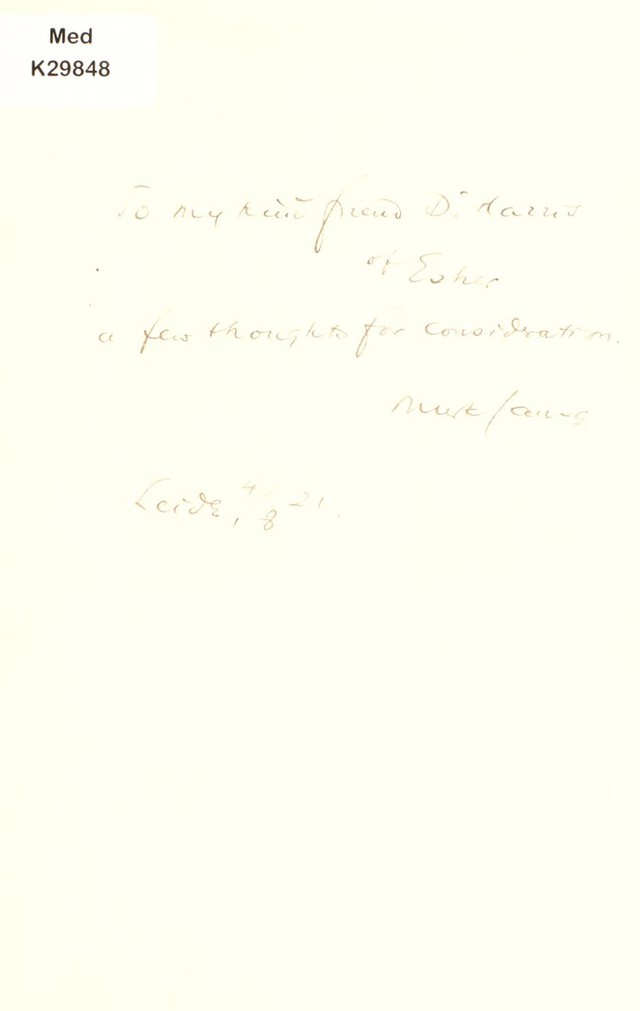 Med
K29848
To my kind friend Dr Harris
of Esher
a few thoughts for consideration.
Leide, 4/8 21.